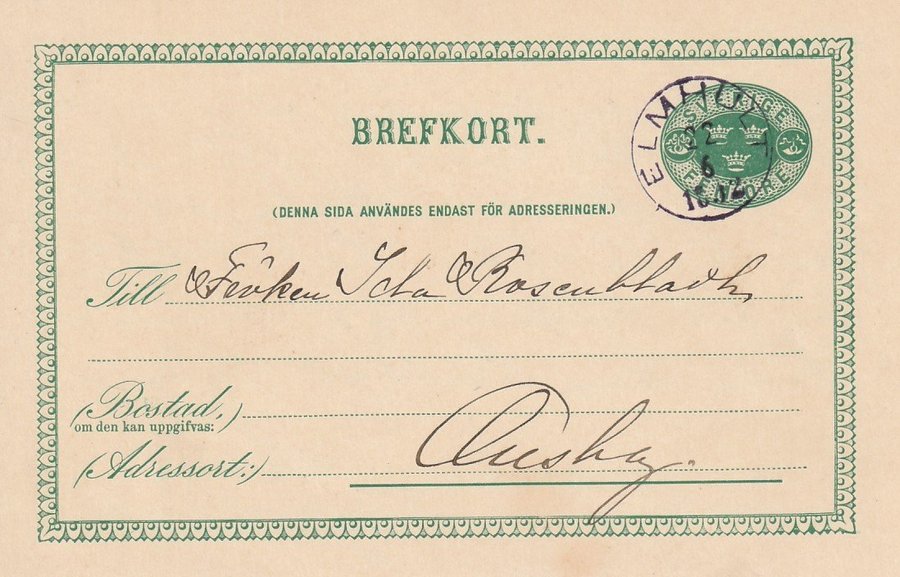 BREFKORT.
SVERIGE
FEM ÖRE
ELMHULT
22
6
(DENNA SIDA ANVÄNDES ENDAST FÖR ADRESSERINGEN.)
Till Fröken Rosenbladh,
(Bostad,)
om den kan uppgifvas:
(Adressort:)